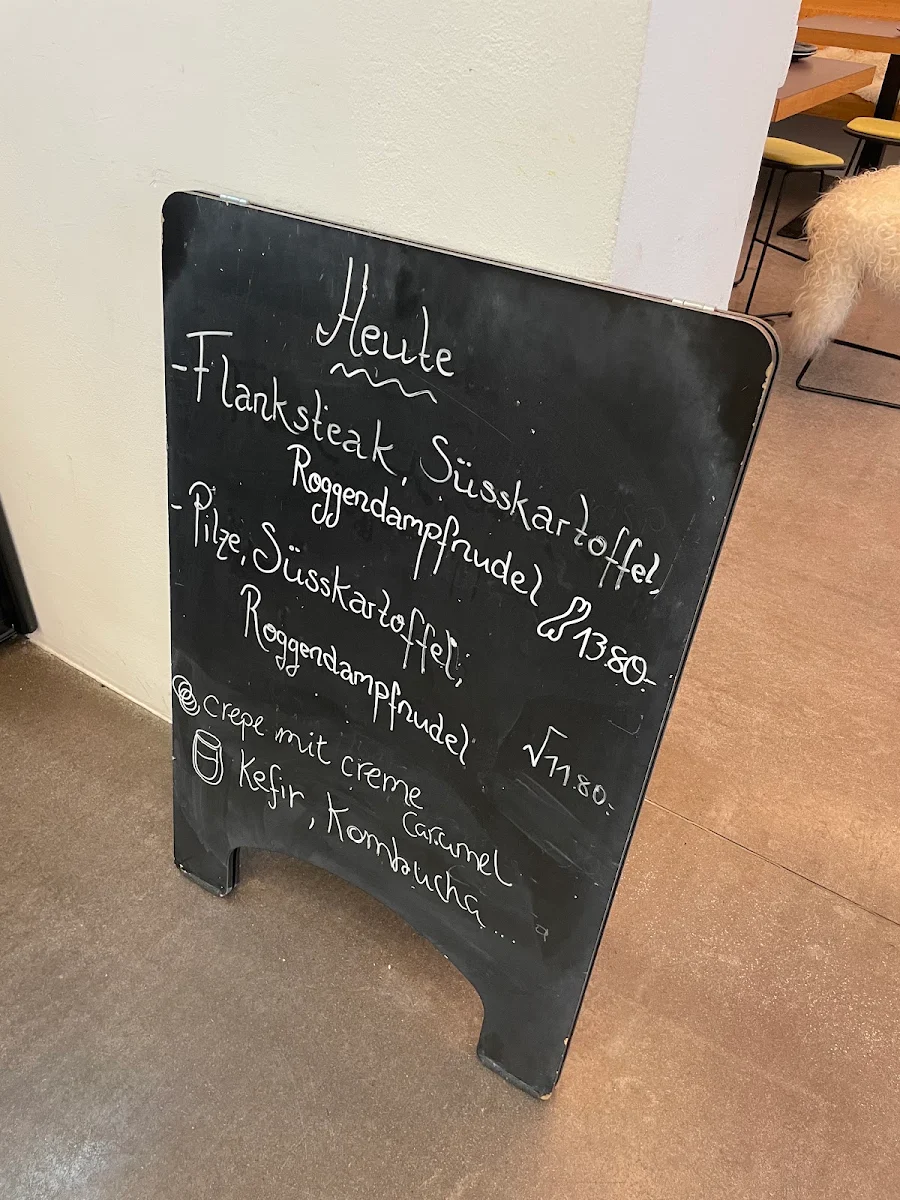 Heute
-Flanksteak, Süsskartoffel,
Roggendampfnudel 13.80.-
-Pilze, Süsskartoffel,
Roggendampfnudel √11.80.-
crepe mit creme
Caramel
Kefir, Kombucha...